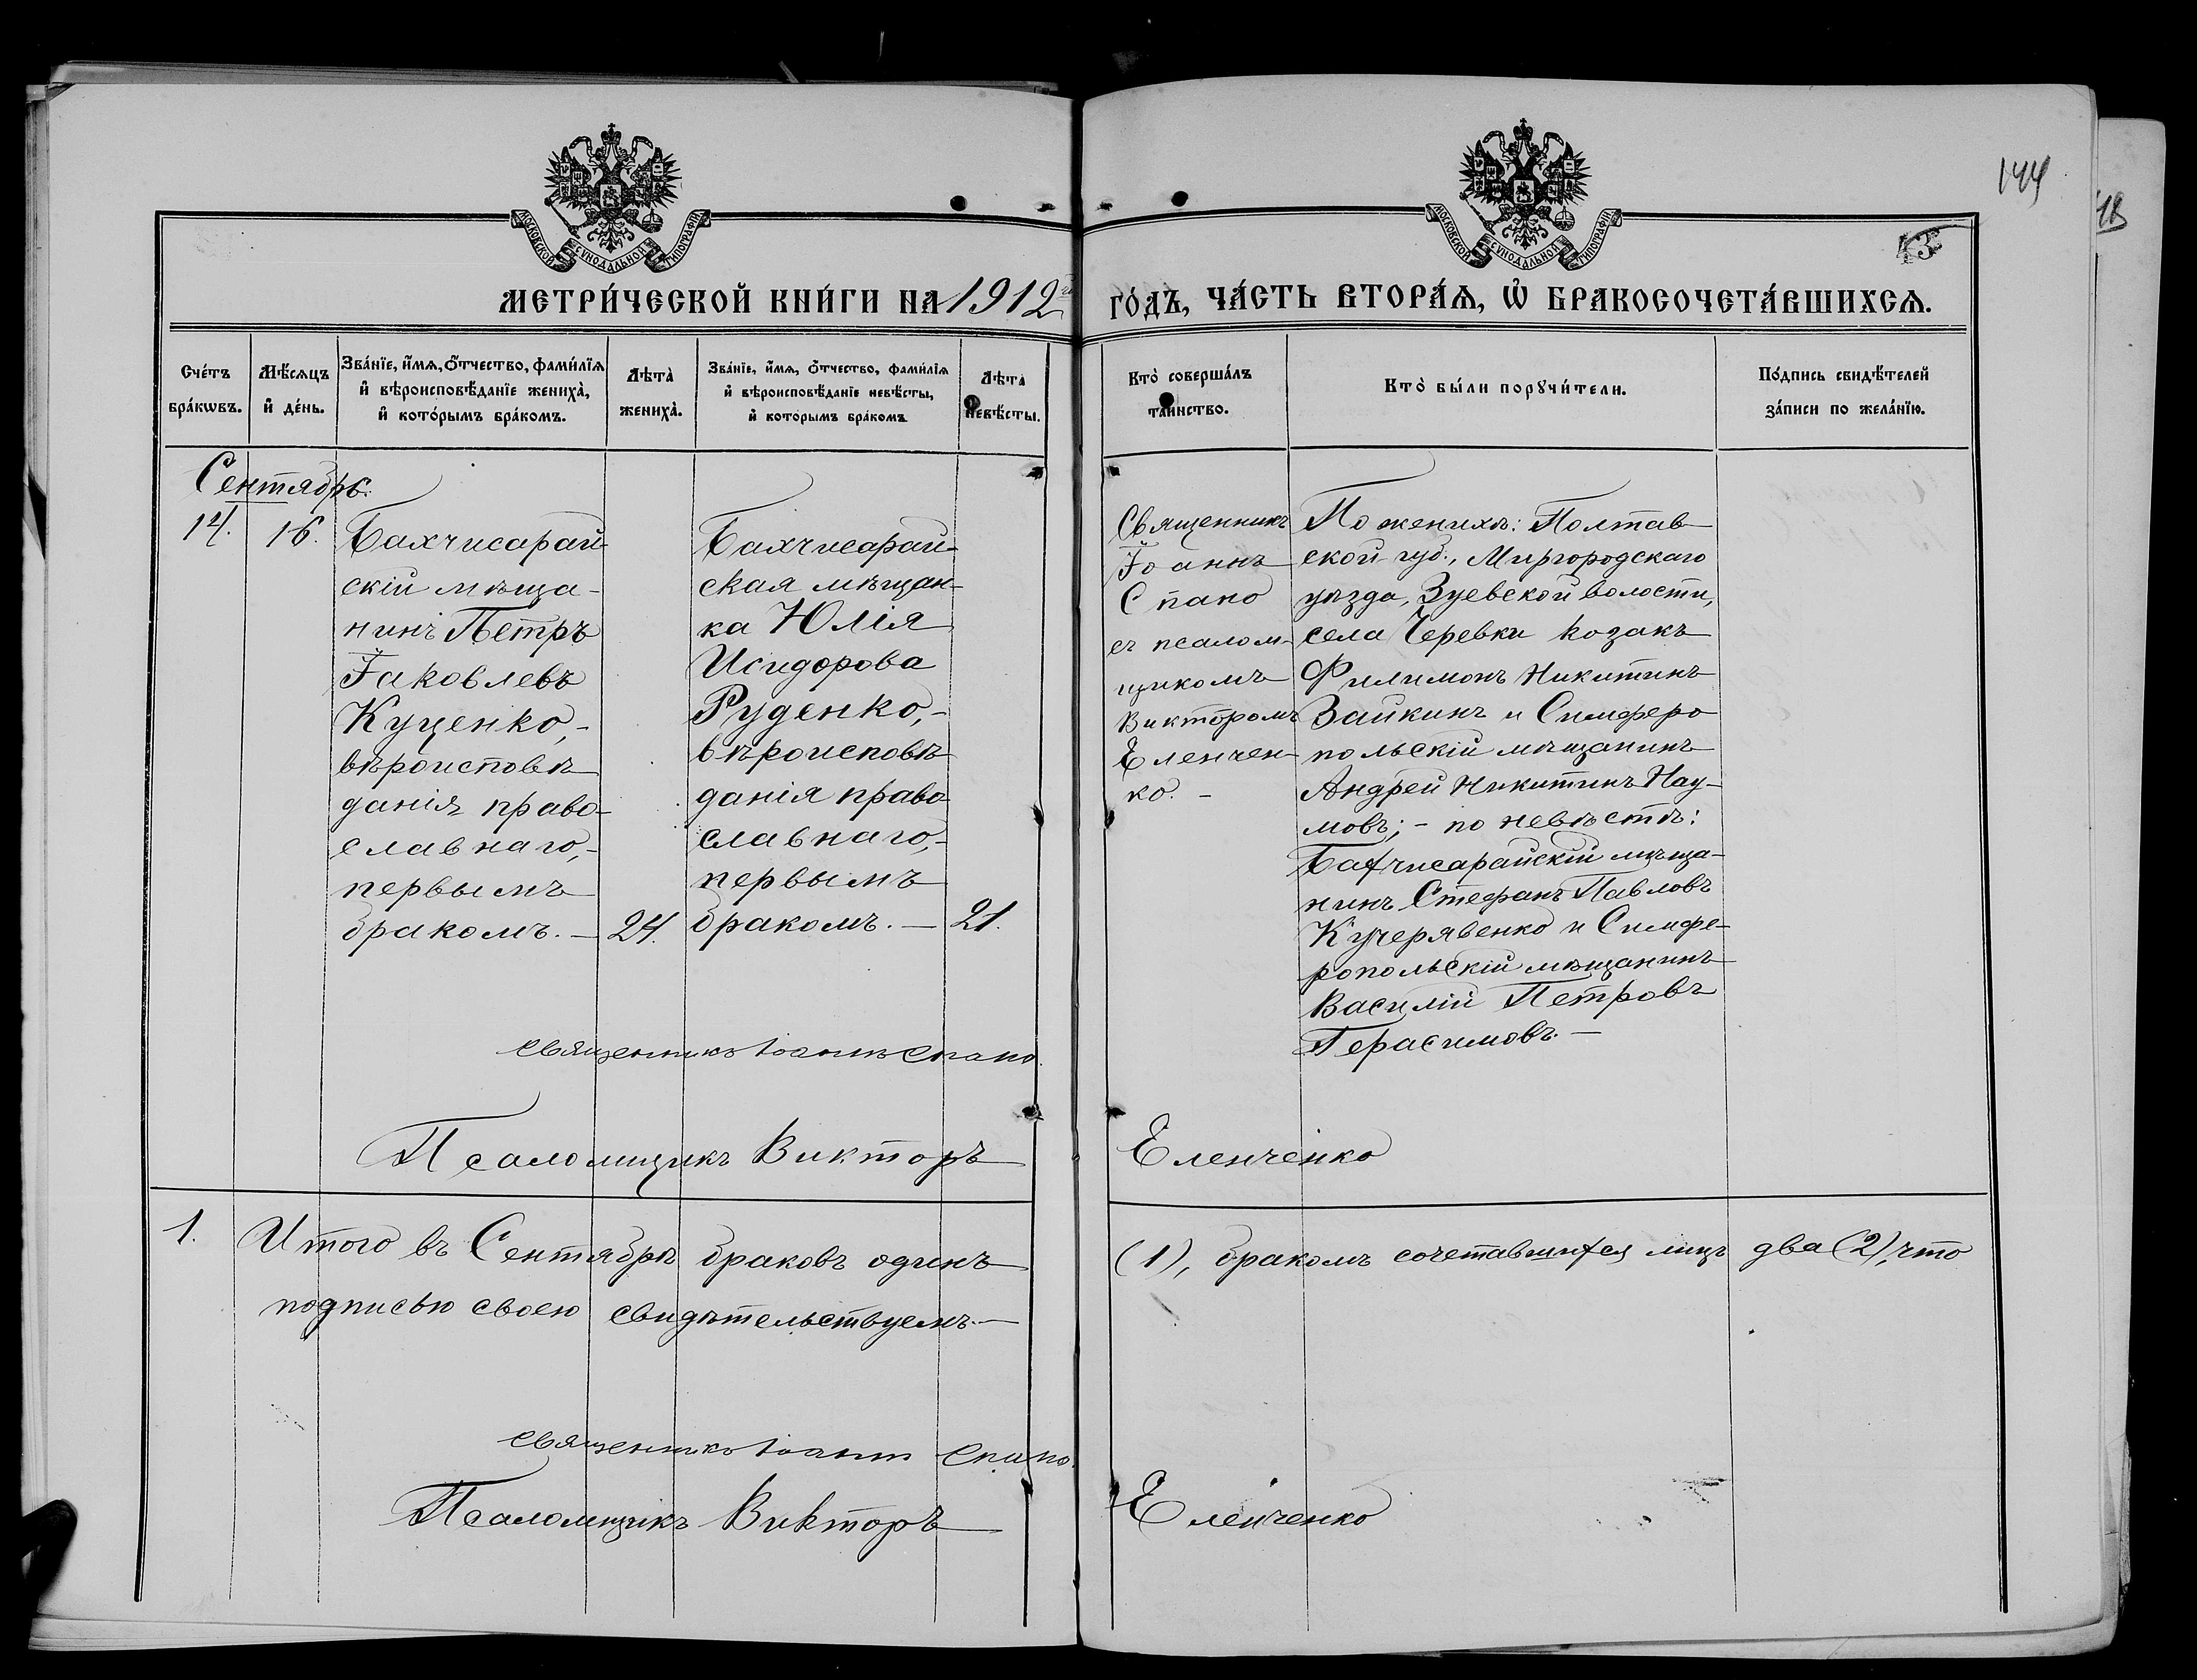 144
18
МОСКОВСКОЙ СУНОДАЛЬНОЙ ТИПОГРАФІИ
МОСКОВСКОЙ СУНОДАЛЬНОЙ ТИПОГРАФІИ
43
МЕТРИ́ЧЕСКОЙ КНИ́ГИ НА 1912 го
ГО́ДЪ, ЧА́СТЬ ВТОРА́Ѧ, Ѡ҆ БРАКОСОЧЕТА́ВШИХСѦ.
Сче́тъ бра́кѡвъ.
Мѣ́сѧцъ и҆ де́нь.
Зва́нїе, и҆́мѧ, ѻ҆́тчество, фами́лїѧ и҆ вѣроисповѣ́данїе жениха̀, и҆ кото́рымъ бра́комъ.
Лѣта̀ жениха̀.
Зва́нїе, и҆́мѧ, ѻ҆́тчество, фами́лїѧ и҆ вѣроисповѣ́данїе невѣ́сты, и҆ кото́рымъ бра́комъ
Лѣта̀ невѣ́сты.
Кто̀ соверша́лъ та́инство.
Кто̀ бы́ли порꙋчи́тели.
По́дпись свидѣ́телей за́писи по жела́нїю.
Сентябрь.
14. 16.
Бахчисарай-
скій мѣща-
нинъ Петръ
Іаковлевъ
Куценко,-
вѣроисповѣ
данія право-
славнаго,-
первымъ
бракомъ. — 24.
Бахчисарай-
ская мѣщан-
ка Юлія
Исидорова
Руденко,-
вѣроисповѣ
данія право
славнаго,-
первымъ
бракомъ. — 21.
Священникъ
Іоаннъ
Спано
съ псалом-
щикомъ
Викторомъ
Еленчен-
ко. -
По женихѣ: Полтав
ской губ., Миргородскаго
уѣзда, Зуевской волости,
села Черевки козакъ
Филимонъ Никитинъ
Зайкинъ и Симферо
польскій мѣщанинъ
Андрей Никитинъ Нау-
мовъ; - по невѣстѣ:
Бахчисарайскій мѣща-
нинъ Стефанъ Павловъ
Кучерявенко и Симфе-
ропольскій мѣщанинъ
Василій Петровъ
Герасимовъ. —
священникъ Іоаннъ Спано.
Псаломщикъ Викторъ Еленченко
1. Итого въ Сентябрѣ браковъ одинъ (1), бракомъ сочетавшихся лицъ два (2), что
подписью своею свидѣтельствуемъ. —
священникъ Іоаннъ Спано.
Псаломщикъ Викторъ Еленченко